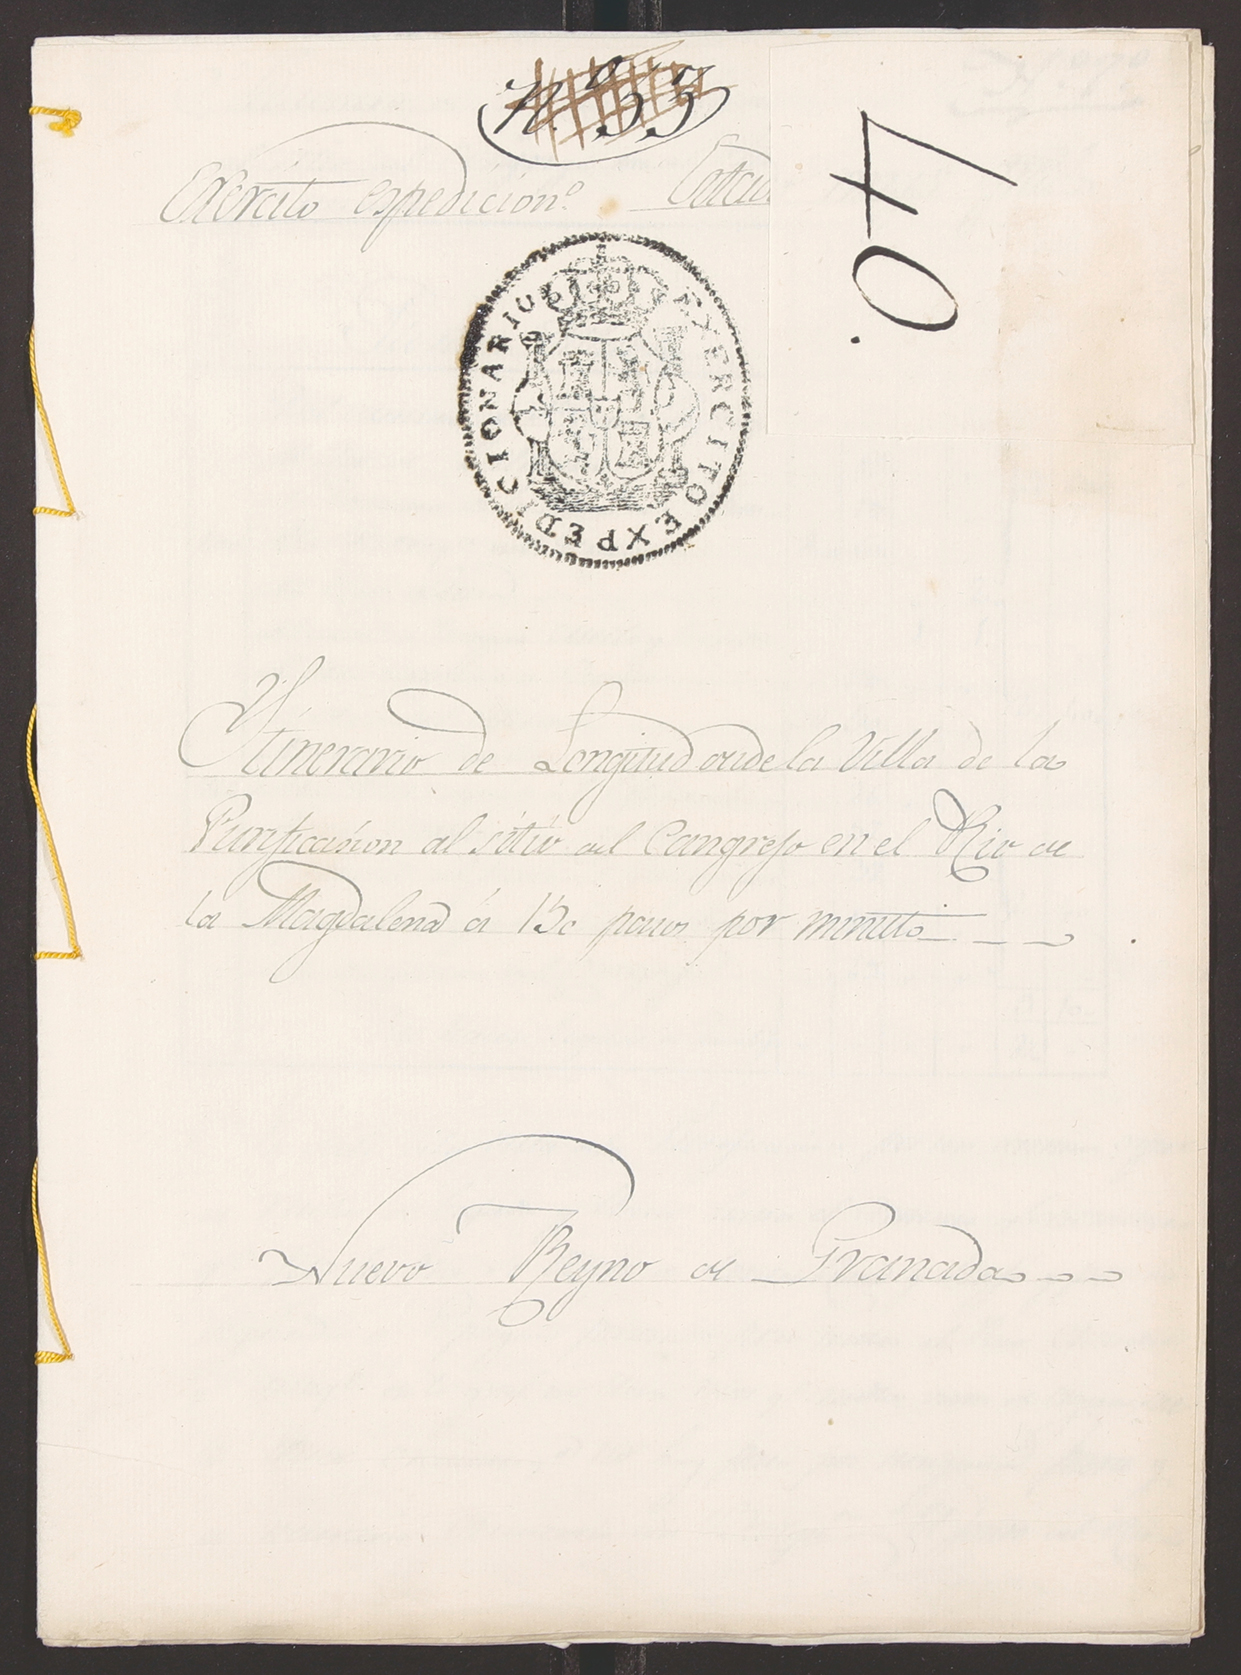 N. 33
40.
Exército expedicion.º Estad
EXERCITO EXPEDICIONARIO
Ytinerario de Longitud desde la Villa de la
Purificasion al sitio del Cangrejo en el Rio de
la Magdalena á 130 pasos por minuto
Nuevo Reyno de Granada